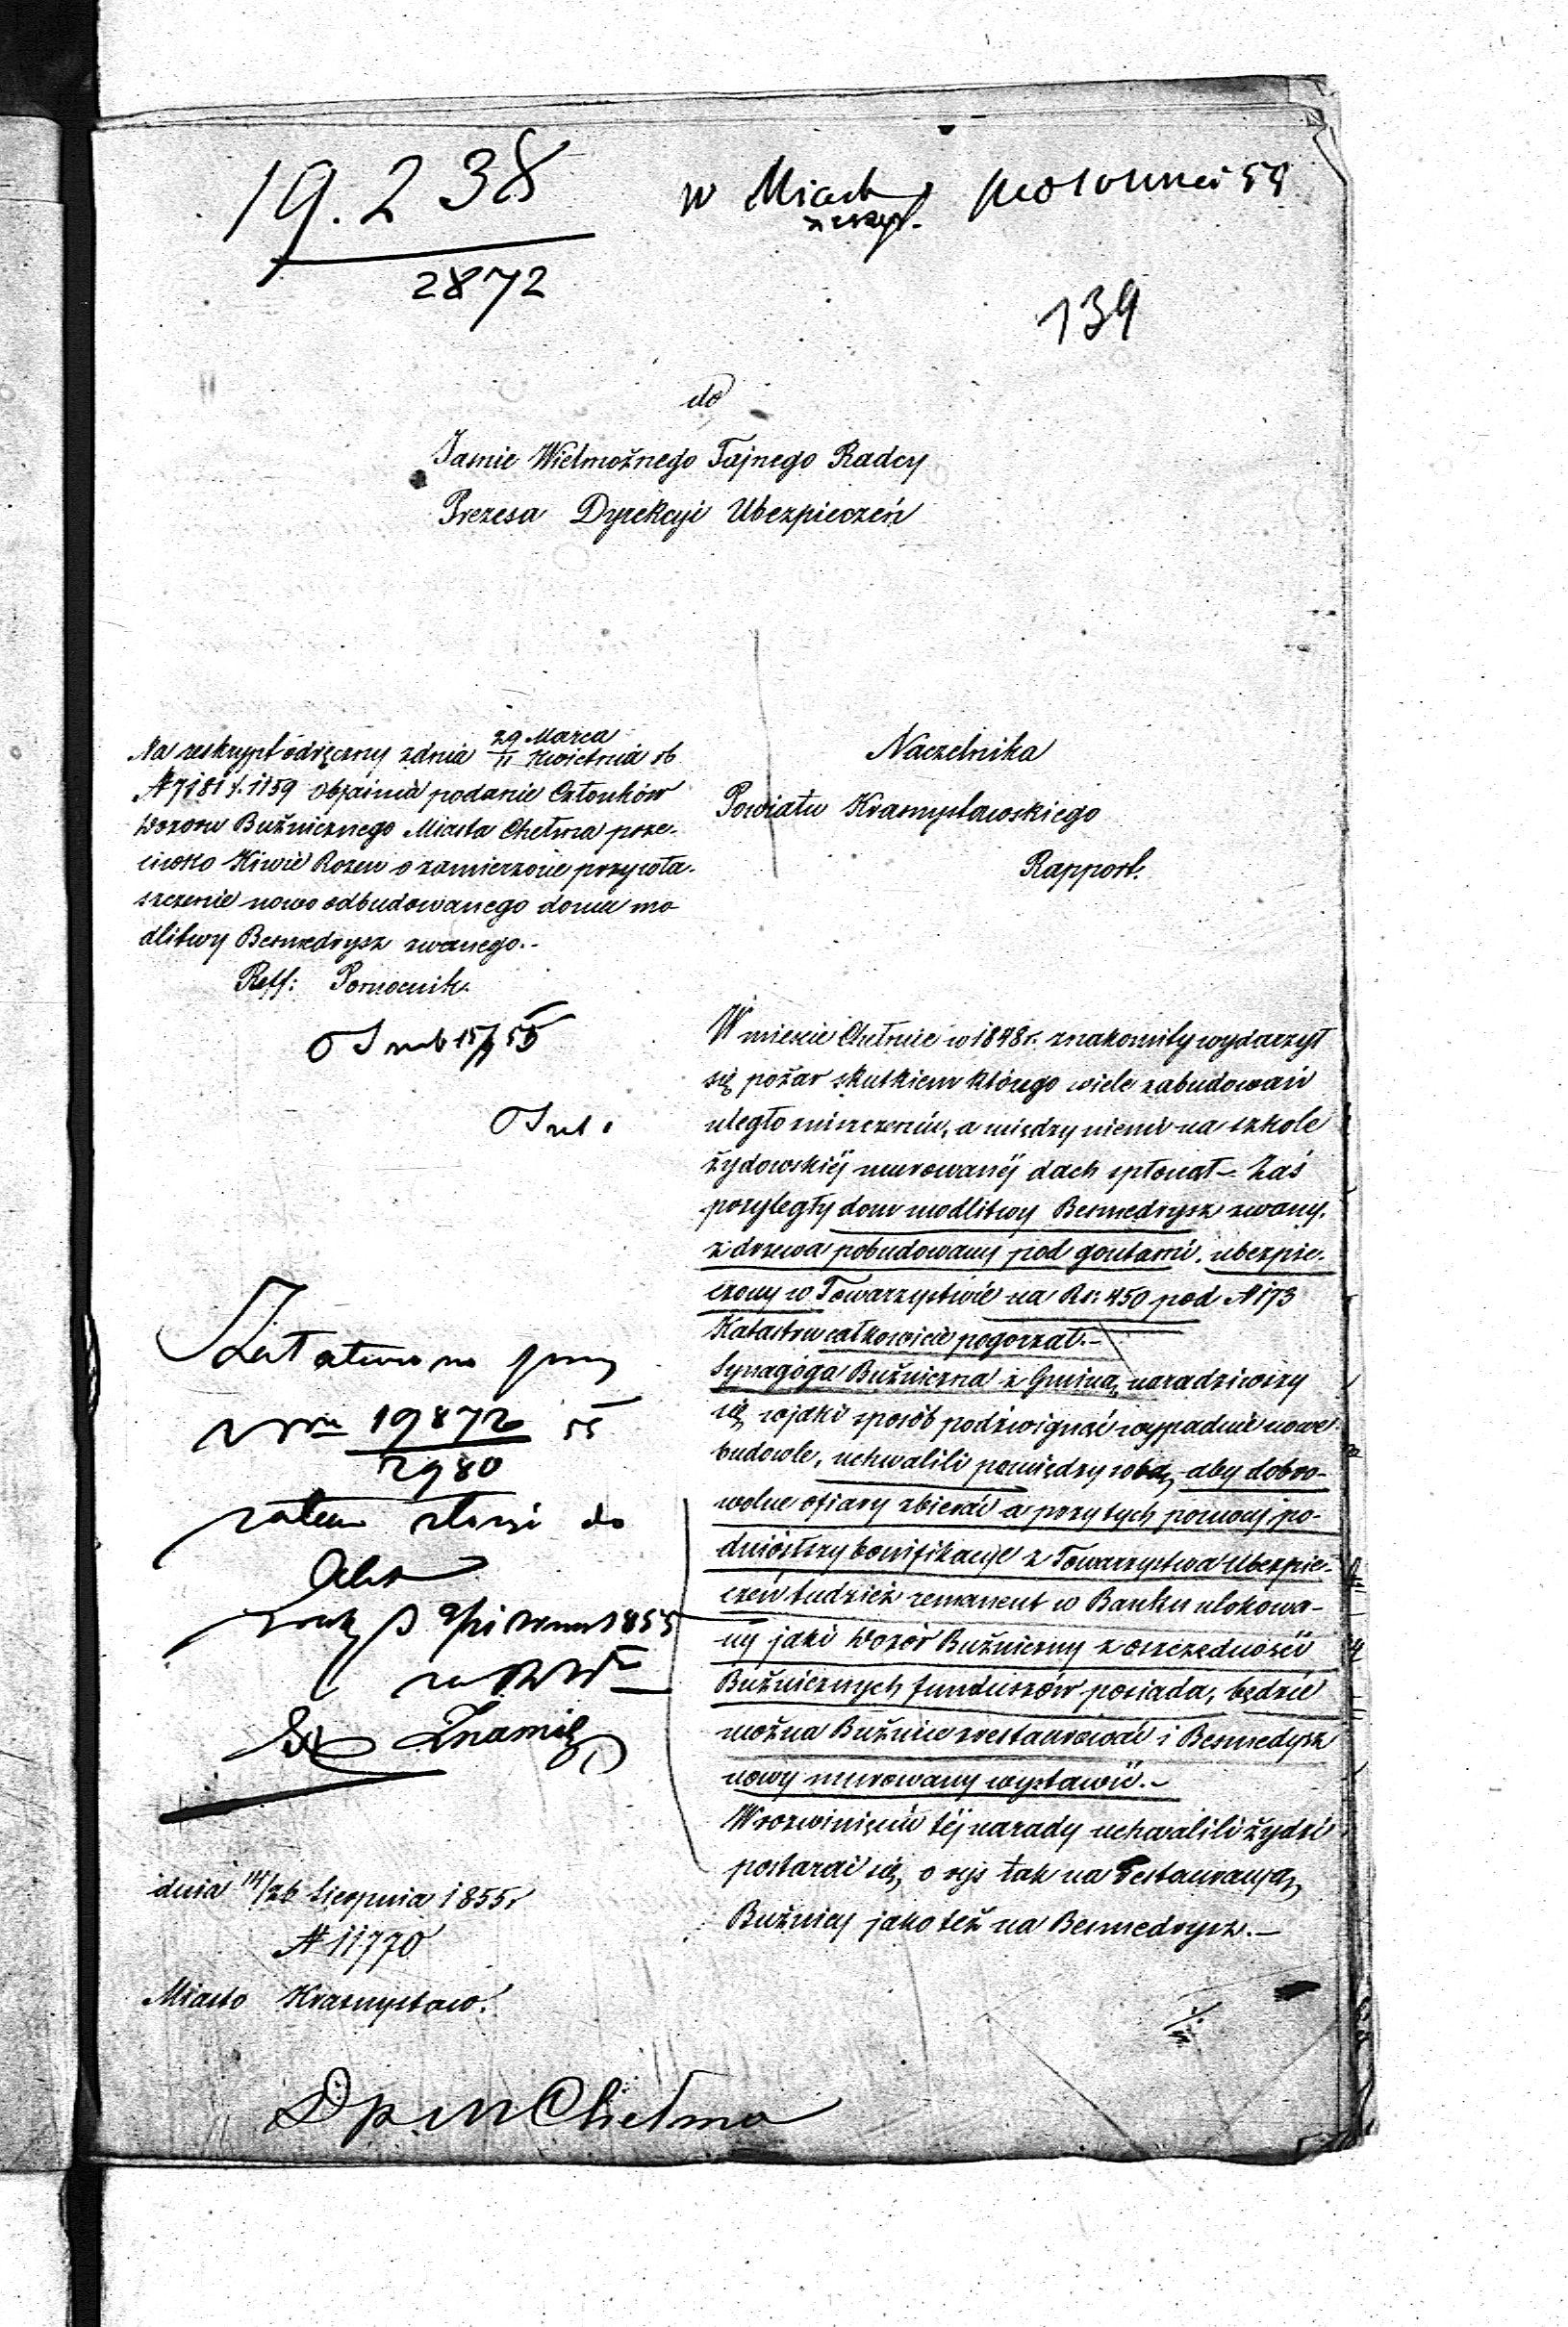 19.238
2872
w Miast
139
do
Jaśnie Wielmożnego Tajnego Radcy
Prezesa Dyrekcyi Ubezpieczeń
Na reskrypt odręczny z dnia 29 Marca / 11 Kwietnia rb
N 7181 f. 1159 objaśnia podanie Członków
Dozoru Bużnicznego Miasta Chełma prze-
ciwko Kiwie Rozen o zamierzone przywła-
szczenie nowo odbudowanego domu mo
dlitwy Besmedrysz zwanego.-
Reff: Pomocnik.
Naczelnika
Powiatu Krasnystawskiego
Rapport.
W mieście Chełmie w 1848 r. znakomity wydarzył
się pożar skutkiem którego wiele zabudowań
uległo zniszczeniu, a między niemi na szkole
żydowskiéj murowanéj dach spłonął - Zaś
przyległy dom modlitwy Besmedrysz zwany,
z drzewa pobudowany pod gontami, ubezpie-
czony w Towarzystwie na Rs: 450 pod N 173
Katastru całkowicie pogorzał.-
Synagoga Bużniczna z Gminą, naradziwszy
się w jaki sposób podźwignąć wypadnie nowe
budowle, uchwalili pomiędzy sobą, aby dobro-
wolne ofiary zbierać a przy tych pomocy po-
dniósłszy bonifikacye z Towarzystwa Ubezpie-
czeń tudzież remanent w Banku ulokowa-
ny jaki Dozór Bużniczny z oszczędności
Bużnicznych funduszów posiada, będzie
można Bużnice zrestaurować i Besmedrysz
nowy murowany wystawić.-
W rozwinięciu téj narady uchwalili żydzi
postarać się, o rys tak na restauracyą
Bużnicy jako też na Besmedrysz.-
Załatwiono przy
Nrze 19872 / 2980 55
zatem złożyć do
Akt
1855
dnia 14/26 Sierpnia 1855 r
N 11770
Miasto Krasnystaw.
D p m Chełma